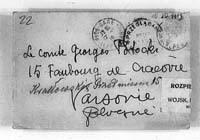 22
Le Comte Georges Potocki
15 Faubourg de Cracovie
Krakowskie Przedmiescie 15
Varsovie
Pologne
ROZPIE
WOJSK.